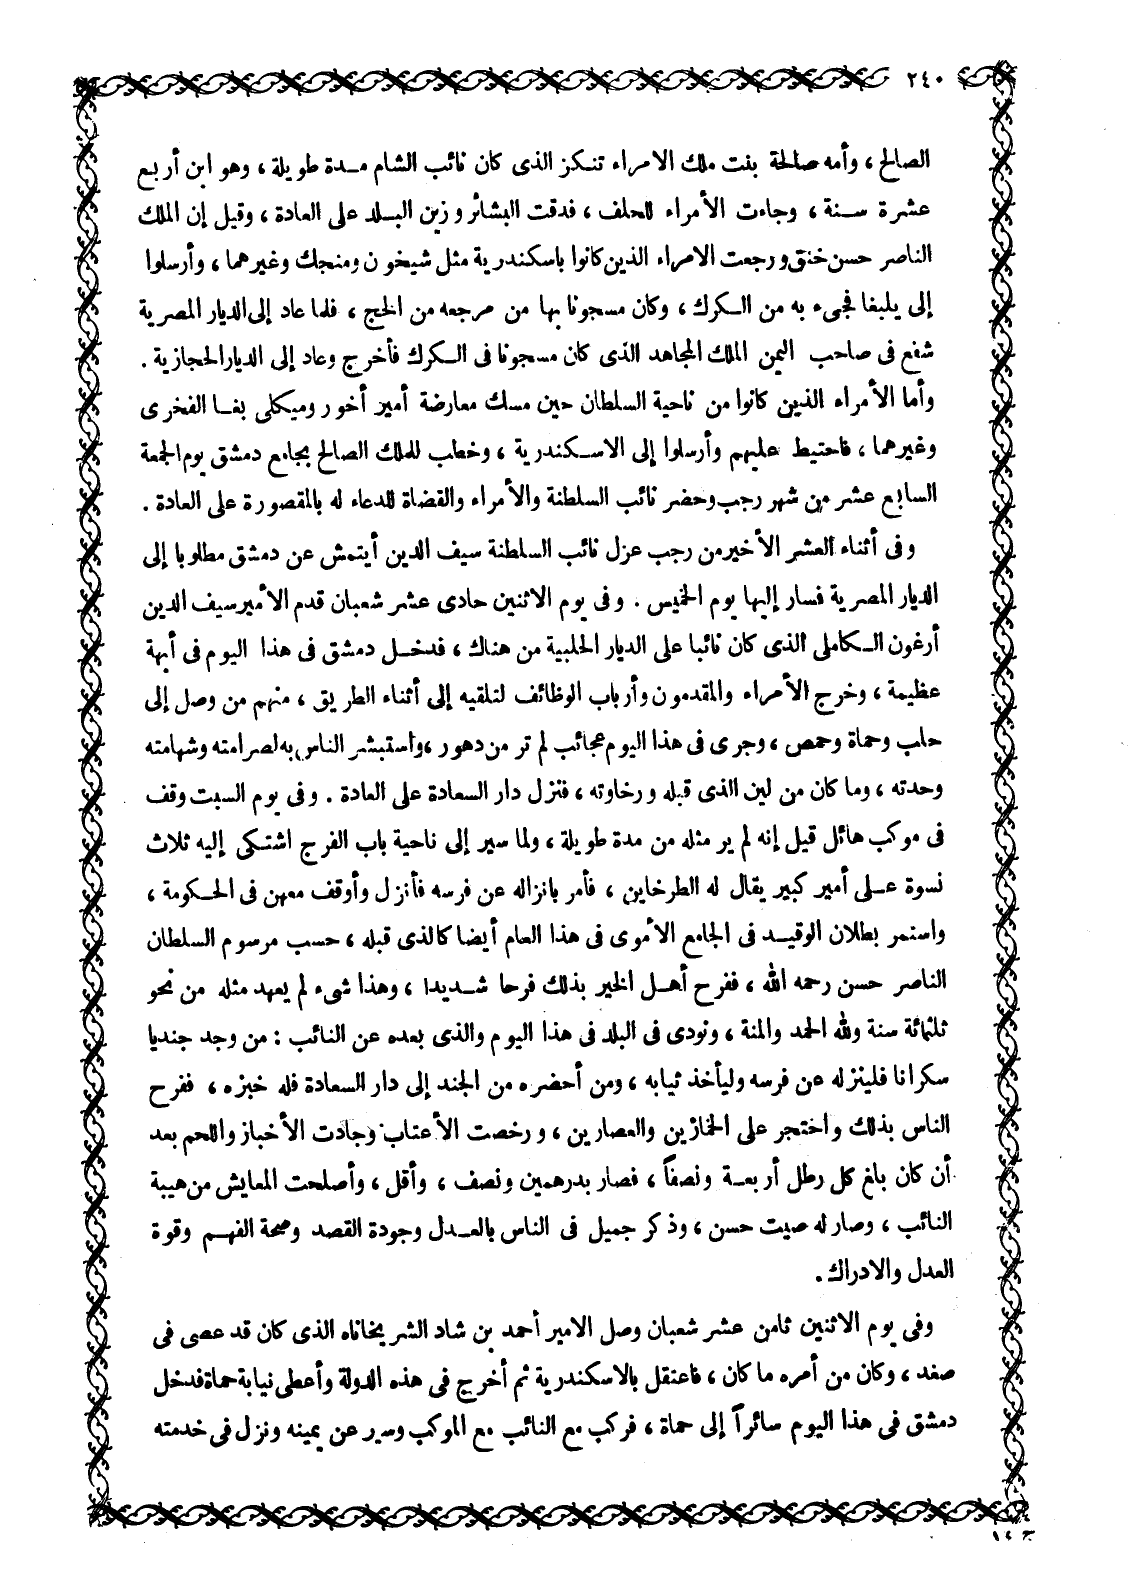 ٢٤٠
الصالح ، وأمه صالحة بنت ملك الامراء تنكز الذى كان نائب الشام مدة طويلة ، وهو ابن أربع
عشرة سنة ، وجاءت الأمراء للحلف ، فدقت البشائر وزين البلد على العادة ، وقيل إن الملك
الناصر حسن خنق ورجعت الامراء الذين كانوا باسكندرية مثل شيخون ومنجك وغيرهما ، وأرسلوا
إلى يلبغا فجىء به من الكرك ، وكان مسجونا بها من مرجعه من الحج ، فلما عاد إلى الديار المصرية
شفع فى صاحب اليمن الملك المجاهد الذى كان مسجونا فى الكرك فأخرج وعاد إلى الديار الحجازية .
وأما الأمراء الذين كانوا من ناحية السلطان حين مسك معارضة أمير أخور وميكلى بغا الفخرى
وغيرهما ، فاحتيط عليهم وأرسلوا إلى الاسكندرية ، وخطب للملك الصالح بجامع دمشق يوم الجمعة
السابع عشر من شهر رجب وحضر نائب السلطنة والأمراء والقضاة للدعاء له بالمقصورة على العادة .
وفى أثناء العشر الأخير من رجب عزل نائب السلطنة سيف الدين أيتمش عن دمشق مطلوبا إلى
الديار المصرية فسار إليها يوم الخميس . وفى يوم الاثنين حادى عشر شعبان قدم الأمير سيف الدين
أرغون الكاملى الذى كان نائبا على الديار الحلبية من هناك ، فدخل دمشق فى هذا اليوم فى أبهة
عظيمة ، وخرج الأمراء والمقدمون وأرباب الوظائف لتلقيه إلى أثناء الطريق ، منهم من وصل إلى
حلب وحماة وحمص ، وجرى فى هذا اليوم عجائب لم تر من دهور ، واستبشر الناس به لصرامته وشهامته
وحدته ، وما كان من لين الذى قبله ورخاوته ، فنزل دار السعادة على العادة . وفى يوم السبت وقف
فى موكب هائل قيل إنه لم ير مثله من مدة طويلة ، ولما سير إلى ناحية باب الفرج اشتكى إليه ثلاث
نسوة على أمير كبير يقال له الطرخاين ، فأمر بانزاله عن فرسه فأنزل وأوقف معهن فى الحكومة ،
واستمر بطلان الوقيد فى الجامع الأموى فى هذا العام أيضا كالذى قبله ، حسب مرسوم السلطان
الناصر حسن رحمه الله ، ففرح أهل الخير بذلك فرحا شديدا ، وهذا شىء لم يعهد مثله من نحو
ثلثمائة سنة ولله الحمد والمنة ، ونودى فى البلد فى هذا اليوم والذى بعده عن النائب : من وجد جنديا
سكرانا فلينزله عن فرسه وليأخذ ثيابه ، ومن أحضره من الجند إلى دار السعادة فله خبزه ، ففرح
الناس بذلك واختجر على الخمازين والعصارين ، ورخصت الأعتاب وجادت الأخباز واللحم بعد
أن كان بلغ كل رطل أربعة ونصفاً ، فصار بدرهمين ونصف ، وأقل ، وأصلحت المعايش من هيبة
النائب ، وصار له صيت حسن ، وذكر جميل فى الناس بالعدل وجودة القصد وصحة الفهم وقوة
العدل والادراك .
وفى يوم الاثنين ثامن عشر شعبان وصل الامير أحمد بن شاد الشريخاناه الذى كان قد عصى فى
صفد ، وكان من أمره ما كان ، فاعتقل بالاسكندرية ثم أخرج فى هذه الدولة وأعطى نيابة حماة فدخل
دمشق فى هذا اليوم سائراً إلى حماة ، فركب مع النائب مع الموكب وسير عن يمينه ونزل فى خدمته
ج ١٤